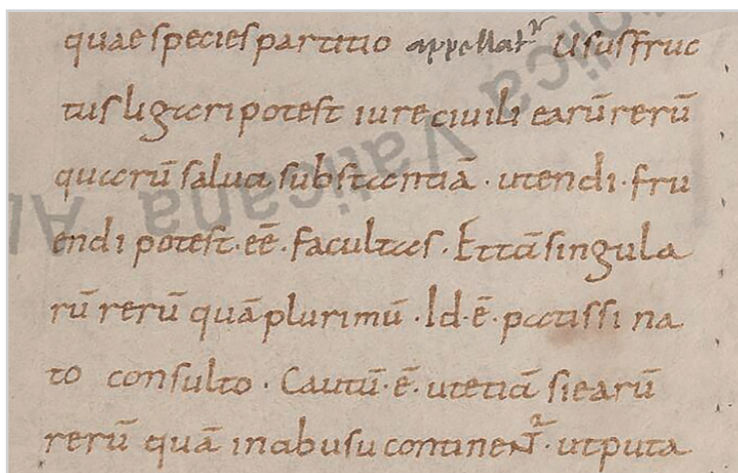 quae species partitio appellatᷣ Ususfruc
tus ligari potest iure ciuili earū rerū
quarū salua substantiā · utendi · fru
endi potest · eē · facultas · Et tā singula
rū rerū quā plurimū · Id · ē · patissi na
to consulto · Cautū · ē · ut etiā si earū
rerū quā in abusu continentᷣ · ut puta
Vaticana